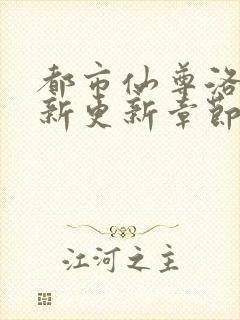 都市仙尊洛
新更新章節
江河之主